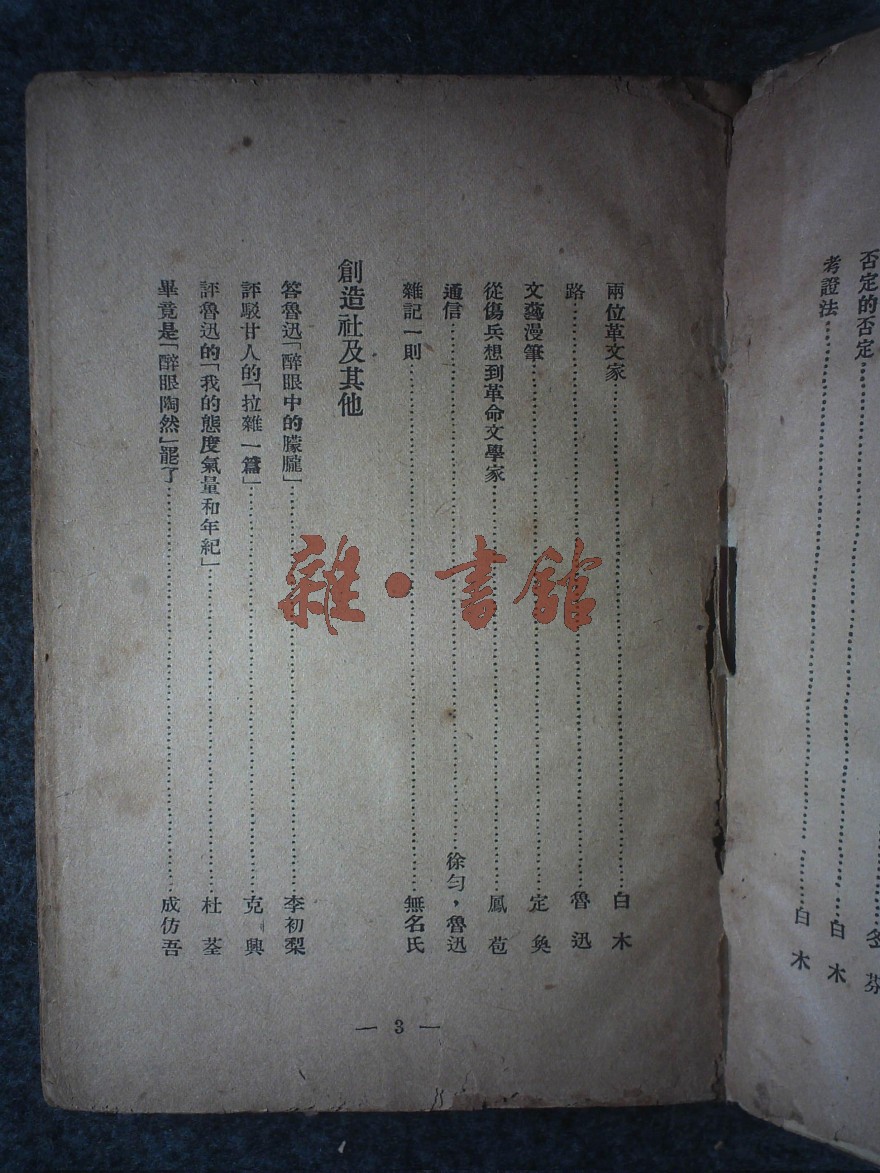 否定的否定
芬
考證法……白木
白木
兩位革文家……白木
路……魯迅
文藝漫筆……定奐
從傷兵想到革命文學家……鳳苞
通信……徐勻，魯迅
雜記一則……無名氏
創造社及其他
答魯迅「醉眼中的朦朧」……李初梨
評駁甘人的「拉雜一篇」……克興
評魯迅的「我的態度氣量和年紀」……杜荃
畢竟是「醉眼陶然」罷了……成仿吾
— 3 —
雜·書館